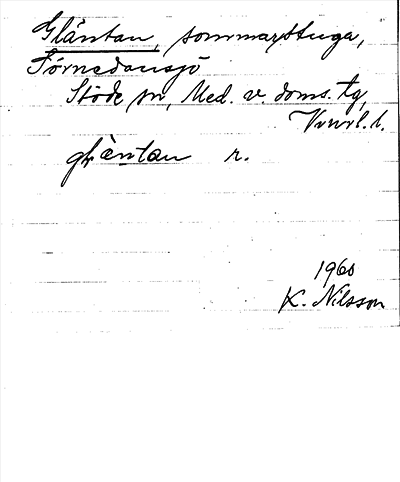 Gläntan, sommarstuga,
Törnedansjö
Stöde sn, Med. v. doms. tg,
Vnrl. l.
gläntan r.
1960
K. Nilsson